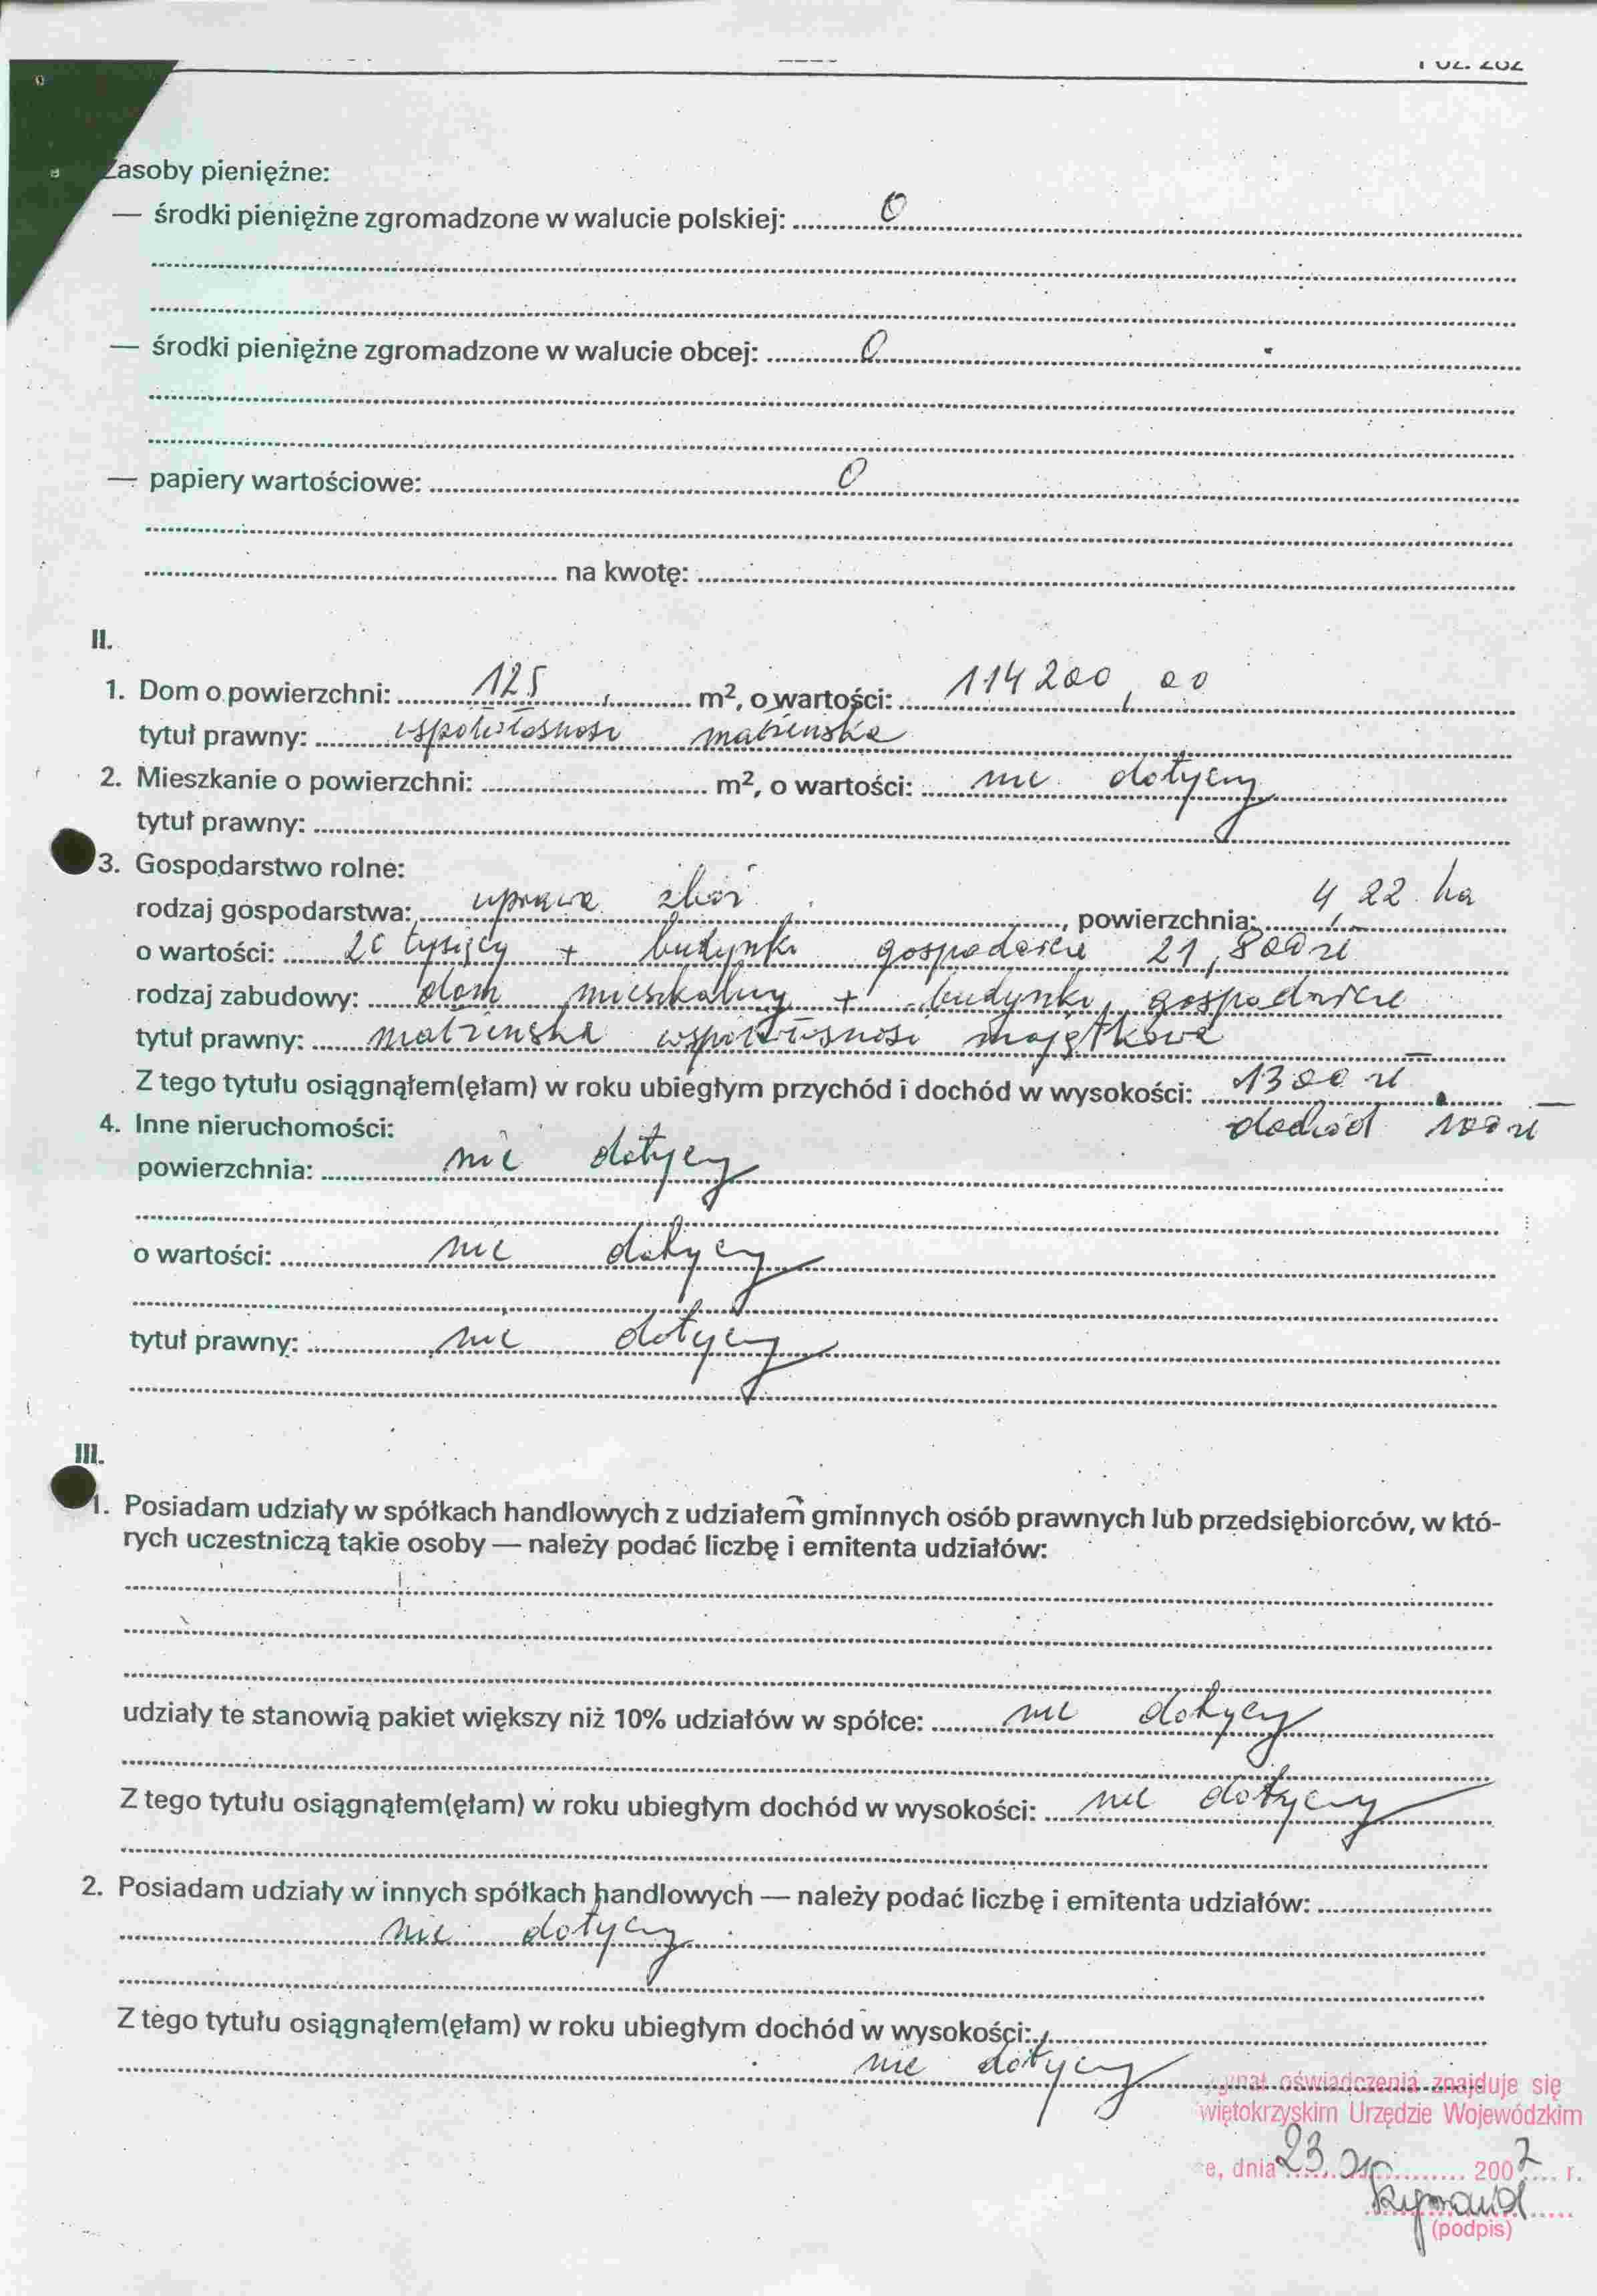 Poz. 202
Zasoby pieniężne:
— środki pieniężne zgromadzone w walucie polskiej: 0
— środki pieniężne zgromadzone w walucie obcej: 0
— papiery wartościowe: 0
na kwotę:
II.
1. Dom o powierzchni: 125 m², o wartości: 114 200,00
tytuł prawny: współwłasność małżeńska
2. Mieszkanie o powierzchni: m², o wartości: nie dotyczy
tytuł prawny:
3. Gospodarstwo rolne:
rodzaj gospodarstwa: uprawa zbóż, powierzchnia: 4,22 ha
o wartości: 20 tysięcy + budynki gospodarcze 21,800 zł
rodzaj zabudowy: dom mieszkalny + budynki gospodarcze
tytuł prawny: małżeńska współwłasność majątkowa
Z tego tytułu osiągnąłem(ęłam) w roku ubiegłym przychód i dochód w wysokości: 1300 zł
dochód 100 zł
4. Inne nieruchomości:
powierzchnia: nie dotyczy
o wartości: nie dotyczy
tytuł prawny: nie dotyczy
III.
1. Posiadam udziały w spółkach handlowych z udziałem gminnych osób prawnych lub przedsiębiorców, w któ-
rych uczestniczą takie osoby — należy podać liczbę i emitenta udziałów:
udziały te stanowią pakiet większy niż 10% udziałów w spółce: nie dotyczy
Z tego tytułu osiągnąłem(ęłam) w roku ubiegłym dochód w wysokości: nie dotyczy
2. Posiadam udziały w innych spółkach handlowych — należy podać liczbę i emitenta udziałów:
nie dotyczy
Z tego tytułu osiągnąłem(ęłam) w roku ubiegłym dochód w wysokości:
nie dotyczy
ygnał oświadczenia znajduje się
więtokrzyskim Urzędzie Wojewódzkim
e, dnia 23. 2007 r.
(podpis)